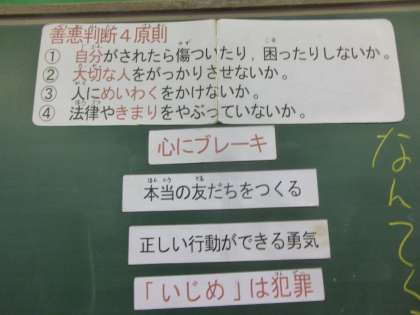 善悪判断4原則
① 自分がされたら傷ついたり，困ったりしないか。
② 大切な人をがっかりさせないか。
③ 人にめいわくをかけないか。
④ 法律やきまりをやぶっていないか。
心にブレーキ
本当の友だちをつくる
正しい行動ができる勇気
「いじめ」は犯罪
なんてく